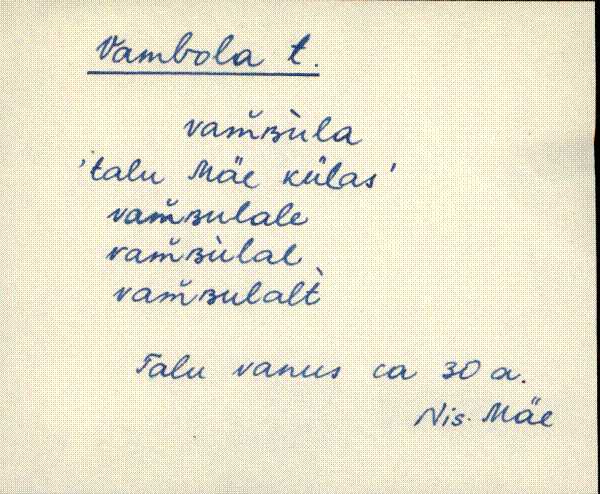 Vambola t.
vam̆ʙùla
'talu Mäe külas'
vam̆ʙulale
vam̆ʙùlal
vam̆ʙulalt̀
Talu vanus ca 30 a.
Nis. Mäe